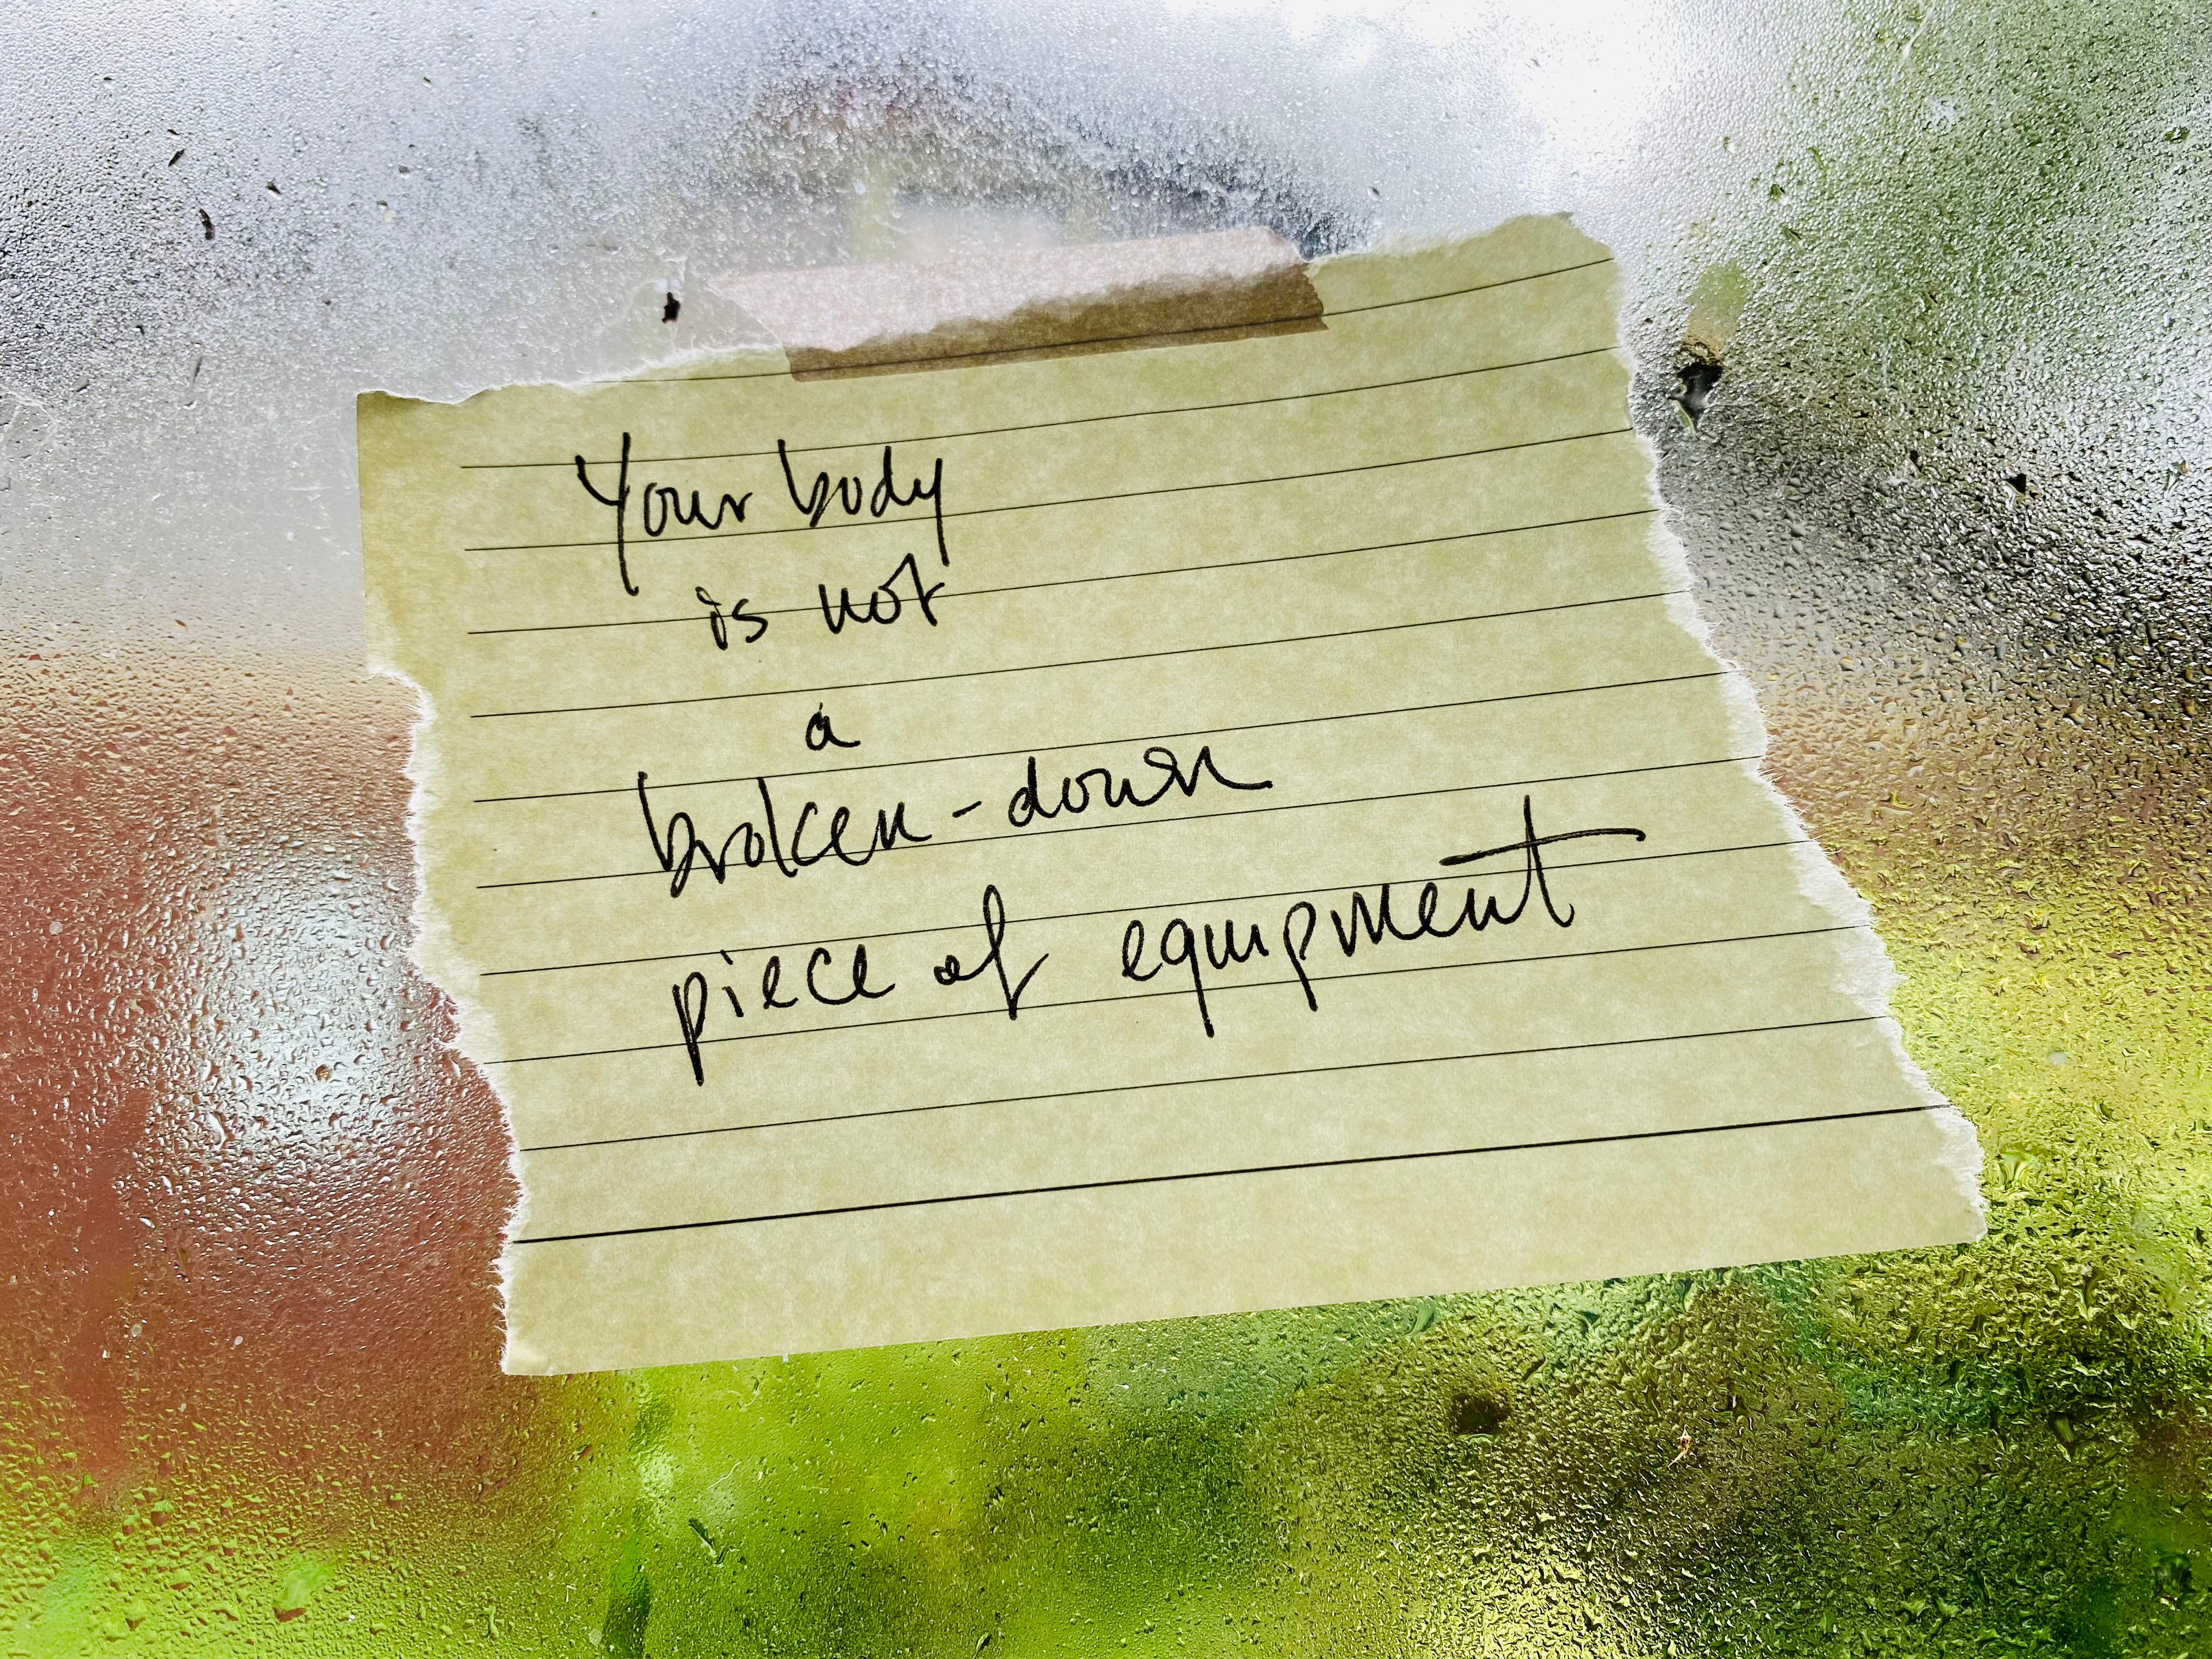 Your body
is not
a
broken-down
piece of equipment